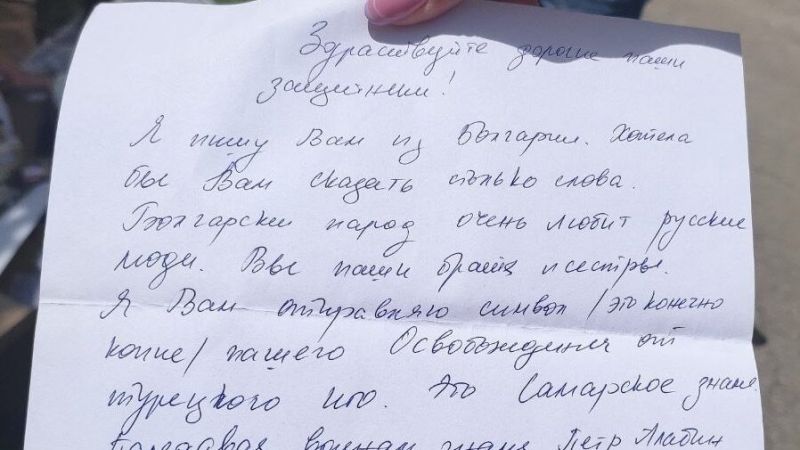 Здраствуйте дорогие наши
защитники!
Я пишу Вам из Болгарии. Хотела
бы Вам сказать столько слова.
Болгарский народ очень любит русские
люди. Ввы наши братя и сестры.
Я Вам отправляю символ /это конечно
копие/ нашего Освобождения от
турецкого иго. Это Самарское знаме.
Петр Алабин